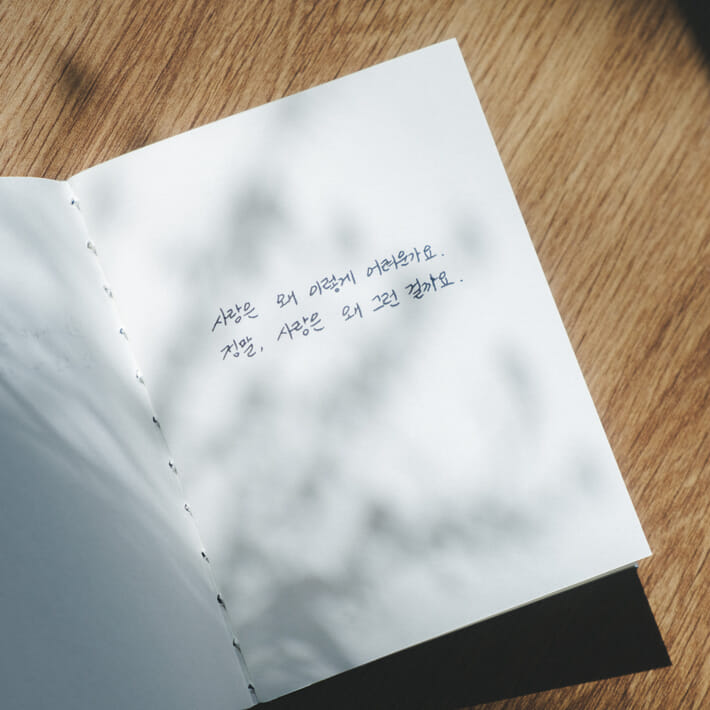 사랑은 왜 이렇게 어려운가요.
정말, 사랑은 왜 그런 걸까요.